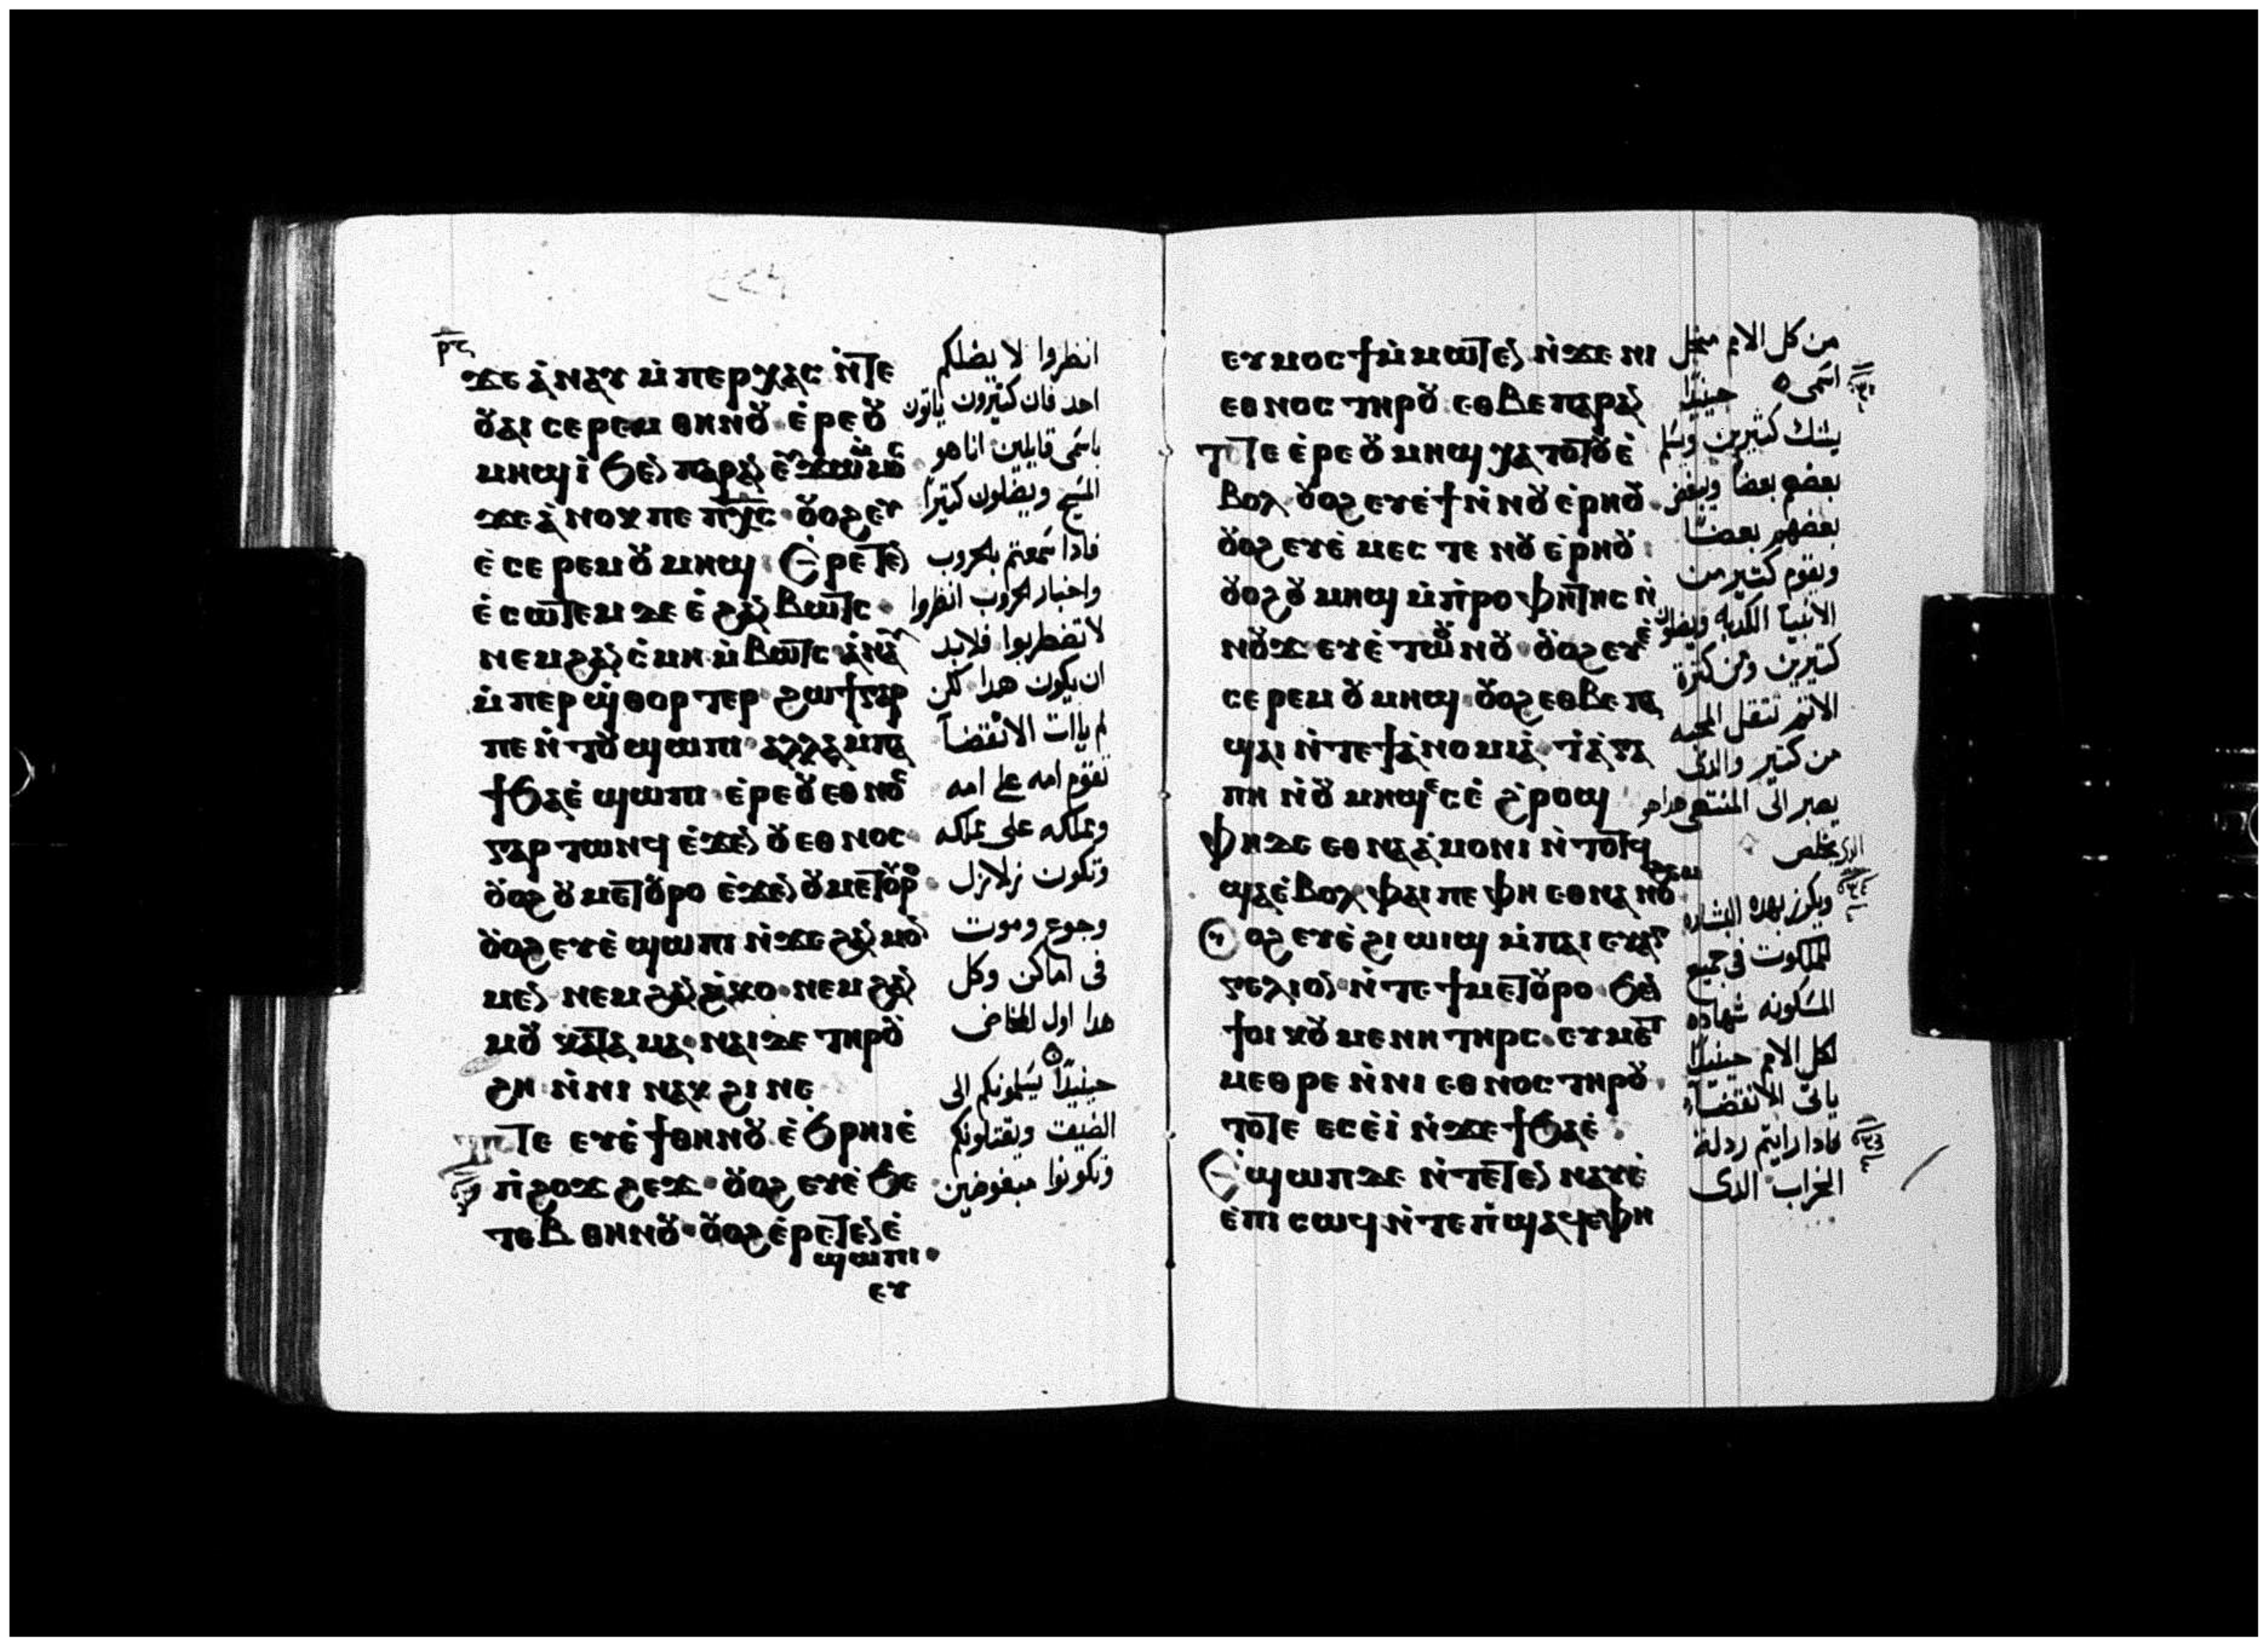 ⲣ̅ⲋ̅
ϫⲉ ⲁ̀ⲛⲁⲩ ⲙ̀ⲡⲉⲣⲭⲁⲥ ⲛ̀ⲧⲉ
ⲟⲩⲁⲓ ⲥⲉⲣⲉⲙ ⲑⲏⲛⲟⲩ ⲉ̀ⲣⲉⲟⲩ
ⲙⲏϣ ⲓ̀ ϧⲉⲛ ⲡⲁⲣⲁⲛ ⲉⲩϫⲱ ⲙ̀ⲙⲟⲥ
ϫⲉ ⲁ̀ⲛⲟⲕ ⲡⲉ ⲡⲭ̅ⲥ̅ ⲟⲩⲟϩ ⲉⲩ
ⲉ̀ⲥⲉⲣⲉⲙ ⲟⲩⲙⲏϣ : Ⲉ̀ⲣⲉⲧⲉⲛ
ⲉ̀ⲥⲱⲧⲉⲙ ⲇⲉ ⲉ̀ ϩⲁⲛ ⲃⲱⲧⲥ
ⲛⲉⲙ ϩⲁⲛ ⲥ̀ⲙⲏ ⲙ̀ⲃⲱⲧⲥ ⲁ̀ⲛⲁⲩ
ⲙ̀ⲡⲉⲣϣ̀ⲑⲟⲣⲧⲉⲣ ϩⲱϯ ⲅⲁⲣ
ⲡⲉ ⲛ̀ⲧⲟⲩϣⲱⲡⲓ ⲁⲗⲗⲁ ⲙ̀ⲡⲁ
ϯϧⲁⲉ̀ ϣⲱⲡⲓ ⲉ̀ⲣⲉ ⲟⲩⲉⲑⲛⲟⲥ
ⲅⲁⲣ ⲧⲱⲛϥ ⲉ̀ϫⲉⲛ ⲟⲩⲉⲑⲛⲟⲥ
ⲟⲩⲟϩ ⲟⲩⲙⲉⲧⲟⲩⲣⲟ ⲉ̀ϫⲉⲛ ⲟⲩⲙⲉⲧⲟⲩⲣⲟ
ⲟⲩⲟϩ ⲉⲩⲉ̀ϣⲱⲡⲓ ⲛ̀ϫⲉ ϩⲁⲛ ⲙⲟⲛ
ⲙⲉⲛ ⲛⲉⲙ ϩⲁⲛ ϩ̀ⲕⲟ ⲛⲉⲙ ϩⲁⲛ
ⲙⲟⲩ ⲕⲁⲧⲁ ⲙⲁ ⲛⲁⲓ ⲇⲉ ⲧⲏⲣⲟⲩ
ϩⲏ ⲛ̀ⲛⲓ ⲛⲁⲕϩⲓ ⲛⲉ
ⲧⲟⲧⲉ ⲉⲩⲉ̀ϯ ⲑⲏⲛⲟⲩ ⲉ̀ϧⲣⲏⲓ ⲉ̀
ⲡ̀ϩⲟϫϩⲉϫ ⲟⲩⲟϩ ⲉⲩⲉ̀ϧⲉ
ⲧⲉⲃ ⲑⲏⲛⲟⲩ ⲟⲩⲟϩ ⲉ̀ⲣⲉⲧⲉⲛⲉ̀
ϣⲱⲡⲓ
ⲉⲩ
انظروا لا يضلكم
احد فان كتيرون ياتون
باسمى قايلين انا هو
المسيح ويضلون كتيرا
فادا سمعتم بالحروب
واخبار الحروب انظروا
لا تضطربوا فلابد
ان يكون هدا لكن
لم يات الانقضآ
تقوم امه على امه
ومملكه على مملكه
وتكون زلازل
وجوع وموت
فى اماكن وكل
هدا اول المخاض
حينيدا يسلمونكم الى
الضيقت ويقتلونكم
وتكونوا مبغوضين
ⲉⲩⲙⲟⲥϯ ⲙ̀ⲙⲱⲧⲉⲛ ⲛ̀ϫⲉ ⲛⲓ
ⲉⲑⲛⲟⲥ ⲧⲏⲣⲟⲩ ⲉⲑⲃⲉ ⲡⲁⲣⲁⲛ
ⲧⲟⲧⲉ ⲉ̀ⲣⲉ ⲟⲩⲙⲏϣ ⲭⲁⲧⲟⲧⲟⲩ ⲉ̀
ⲃⲟⲗ ⲟⲩⲟϩ ⲉⲩⲉ̀ϯ ⲛ̀ⲛⲟⲩⲉ̀ⲣⲏⲟⲩ
ⲟⲩⲟϩ ⲉⲩⲉ̀ⲙⲉⲥⲧⲉ ⲛⲟⲩⲉ̀ⲣⲏⲟⲩ
ⲟⲩⲟϩ ⲟⲩⲙⲏϣ ⲙ̀ⲡ̀ⲣⲟⲫⲏⲧⲏⲥ ⲛ̀
ⲛⲟⲩϫ ⲉⲩⲉ̀ⲧⲱⲟⲩⲛⲟⲩ ⲟⲩⲟϩ ⲉⲩⲉ̀
ⲥⲉⲣⲉⲙ ⲟⲩⲙⲏϣ ⲟⲩⲟϩ ⲉⲑⲃⲉ ⲡⲁ
ϣⲁⲓ ⲛ̀ⲧⲉ ϯⲁ̀ⲛⲟⲙⲓⲁ̀ ϯⲁ̀ⲅⲁ
ⲡⲏ ⲛ̀ⲟⲩⲙⲏϣ ⲉⲥⲉ̀ϩ̀ⲣⲟϣ
ⲫⲏ ⲇⲉ ⲉⲑⲛⲁⲁ̀ⲙⲟⲛⲓ ⲛ̀ⲧⲟⲧϥ
ϣⲁⲉ̀ⲃⲟⲗ ⲫⲁⲓ ⲡⲉ ⲫⲏ ⲉⲑⲛⲁⲛⲟϩⲉⲙ
Ⲟⲩⲟϩ ⲉⲩⲉ̀ϩⲓⲱⲓϣ ⲙ̀ⲡⲁⲓ ⲉⲩⲁⲅ
ⲅⲉⲗⲓⲟⲛ ⲛ̀ⲧⲉ ϯⲙⲉⲧⲟⲩⲣⲟ ϧⲉⲛ
ϯⲟⲓⲕⲟⲩⲙⲉⲛⲏ ⲧⲏⲣⲥ ⲉⲩⲙⲉⲧ
ⲙⲉⲑⲣⲉ ⲛ̀ⲛⲓⲉⲑⲛⲟⲥ ⲧⲏⲣⲟⲩ
ⲧⲟⲧⲉ ⲉⲥⲉ̀ⲓ̀ ⲛ̀ϫⲉ ϯϧⲁⲉ̀
Ⲉ̀ϣⲱⲡ ⲇⲉ ⲛ̀ⲧⲉⲧⲉⲛ ⲛⲁⲩ ⲉ̀
ⲉ̀ⲡⲓⲥⲱϥ ⲛ̀ⲧⲉ ⲡ̀ϣⲁϥⲉ ⲫⲏ
من كل الامم من اجل
اسمى حينيدا
يشك كثيرين ويسلم
بعضهم بعضا ويبغض
بعضهم بعضا
ويقوم كتير من
الانبيا الكدبه ويضلون
كتيرين ومن كترة
الاتم تنقل المحبه
من كتير والدى
يصبر الى المنتهى هدا هو
الدى يخلص
ويكرز بهده البشاره
الملكوت فى جميع
المسكونه شهاده
لكل الامم حينيدا
ياتى الانقضآ
فادا رايتم ردلة
الخراب الدى